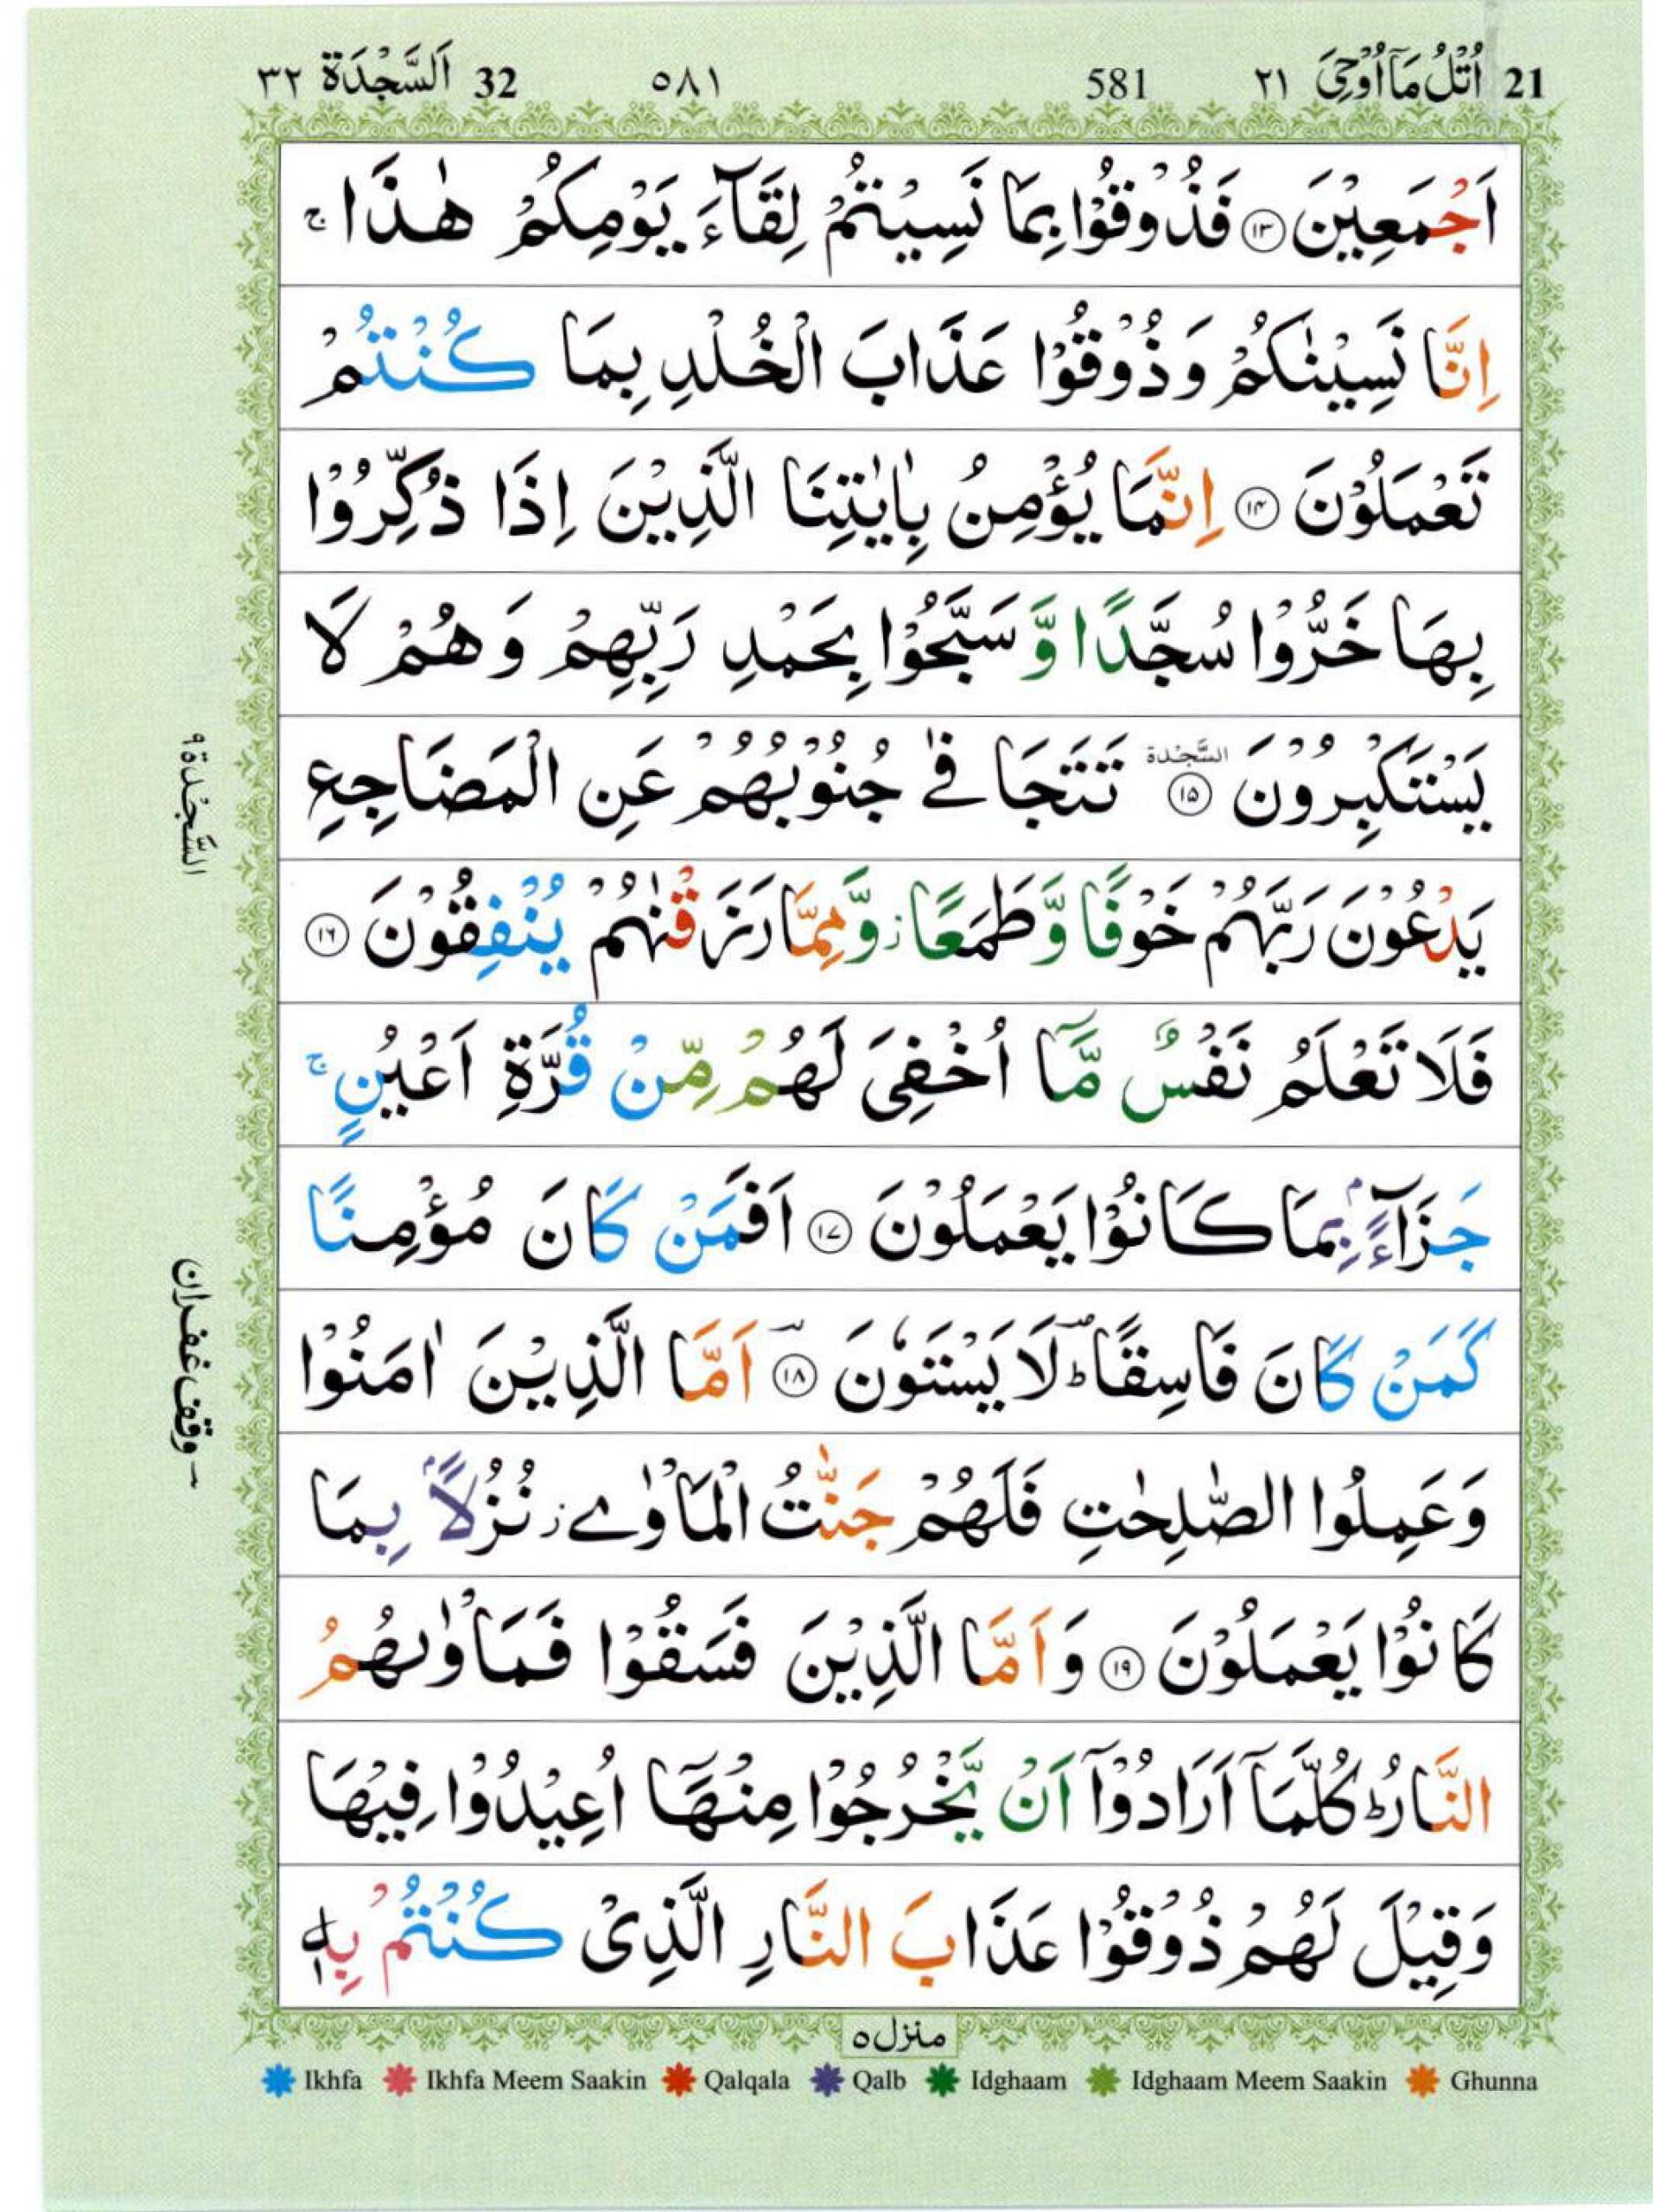 21 اُتْلُ مَاۤ اُوْحِیَ ۲۱ 581 ۵۸۱ 32 اَلسَّجْدَة ۳۲
اَجْمَعِیْنَ ۱۳ فَذُوْقُوْا بِمَا نَسِیْتُمْ لِقَآءَ یَوْمِكُمْ هٰذَا ۚ
اِنَّا نَسِیْنٰكُمْ وَ ذُوْقُوْا عَذَابَ الْخُلْدِ بِمَا كُنْتُمْ
تَعْمَلُوْنَ ۱۴ اِنَّمَا یُؤْمِنُ بِاٰیٰتِنَا الَّذِیْنَ اِذَا ذُكِّرُوْا
بِهَا خَرُّوْا سُجَّدًا وَّ سَبَّحُوْا بِحَمْدِ رَبِّهِمْ وَ هُمْ لَا
یَسْتَكْبِرُوْنَ ۱۵ السَّجْدَة تَتَجَافٰی جُنُوْبُهُمْ عَنِ الْمَضَاجِعِ
یَدْعُوْنَ رَبَّهُمْ خَوْفًا وَّ طَمَعًا ز وَّ مِمَّا رَزَقْنٰهُمْ یُنْفِقُوْنَ ۱۶
فَلَا تَعْلَمُ نَفْسٌ مَّاۤ اُخْفِیَ لَهُمْ مِّنْ قُرَّةِ اَعْیُنٍ ۚ
جَزَآءًۢ بِمَا كَانُوْا یَعْمَلُوْنَ ۱۷ اَفَمَنْ كَانَ مُؤْمِنًا
كَمَنْ كَانَ فَاسِقًا ؕ لَا یَسْتَوٗنَ ۱۸ اَمَّا الَّذِیْنَ اٰمَنُوْا
وَعَمِلُوا الصّٰلِحٰتِ فَلَهُمْ جَنّٰتُ الْمَاْوٰی ز نُزُلًۢا بِمَا
كَانُوْا یَعْمَلُوْنَ ۱۹ وَ اَمَّا الَّذِیْنَ فَسَقُوْا فَمَاْوٰىهُمُ
النَّارُ ؕ كُلَّمَاۤ اَرَادُوْۤا اَنْ یَّخْرُجُوْا مِنْهَاۤ اُعِیْدُوْا فِیْهَا
وَقِیْلَ لَهُمْ ذُوْقُوْا عَذَابَ النَّارِ الَّذِیْ كُنْتُمْ بِهٖ
السَّجْدَة ۹
وقف غفران
منزل ۵
Ikhfa Ikhfa Meem Saakin Qalqala Qalb Idghaam Idghaam Meem Saakin Ghunna